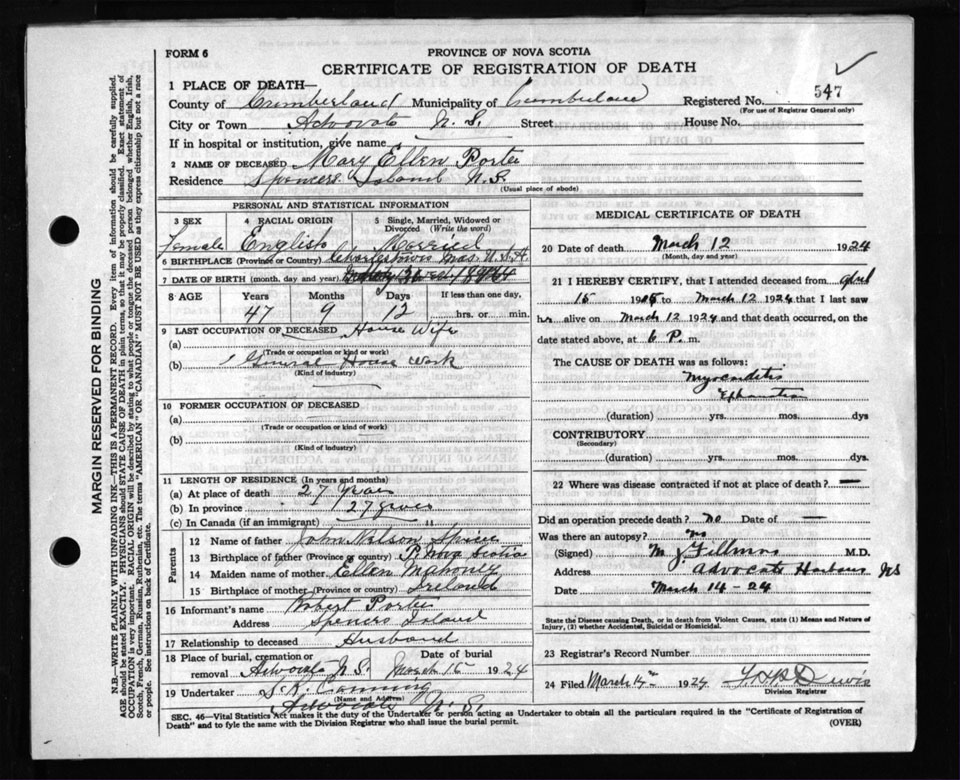 FORM 6
PROVINCE OF NOVA SCOTIA
CERTIFICATE OF REGISTRATION OF DEATH
547
1 PLACE OF DEATH—
County of Cumberland Municipality of Cumberland Registered No.
(For use of Registrar General only)
City or Town Advocate N.S. Street House No.
If in hospital or institution, give name
2 NAME OF DECEASED Mary Ellen Porter
Residence Spencers Island N.S.
(Usual place of abode)
PERSONAL AND STATISTICAL INFORMATION
3 SEX 4 RACIAL ORIGIN 5 Single, Married, Widowed or Divorced (Write the word)
Female English Married
6 BIRTHPLACE (Province or Country) Charlestown Mas. U.S.A.
7 DATE OF BIRTH (month, day and year)
8 AGE Years Months Days If less than one day,
47 9 12 hrs. or min.
9 LAST OCCUPATION OF DECEASED House Wife
(a)
(Trade or occupation or kind or work)
(b) General House Work
(Kind of industry)
10 FORMER OCCUPATION OF DECEASED
(a)
(Trade or occupation or kind of work)
(b)
(Kind of industry)
11 LENGTH OF RESIDENCE (In years and months)
(a) At place of death 27 years
(b) In province 27 years
(c) In Canada (if an immigrant)
Parents
12 Name of father John Nelson Spicer
13 Birthplace of father (Province or country) Nova Scotia
14 Maiden name of mother Ellen Mahoney
15 Birthplace of mother (Province or country) Ireland
16 Informant's name Robert Porter
Address Spencers Island
17 Relationship to deceased Husband
18 Place of burial, cremation or removal Advocate N.S. Date of burial March 15 1924
19 Undertaker S.R. Canning
(Name and Address)
Advocate N.S.
MEDICAL CERTIFICATE OF DEATH
20 Date of death March 12 1924
(Month, day and year)
21 I HEREBY CERTIFY, that I attended deceased from April
15 to March 12 1924 that I last saw
her alive on March 12 1924 and that death occurred, on
date stated above, at 6 P. m.
The CAUSE OF DEATH was as follows:
Myocarditis
Exhaustion
(duration) yrs. mos. dys
CONTRIBUTORY
(Secondary)
(duration) yrs. mos. days
22 Where was disease contracted if not at place of death? —
Did an operation precede death? no Date of —
Was there an autopsy? no
(Signed) M. J. Fillmore M.D.
Address Advocate Harbour NS
Date March 14-24
State the Disease causing Death, or in death from Violent Causes, state (1) Means and Nature of Injury, (2) whether Accidental, Suicidal or Homicidal.
23 Registrar's Record Number
24 Filed March 14 1924
Division Registrar
SEC. 46—Vital Statistics Act makes it the duty of the Undertaker or person acting as Undertaker to obtain all the particulars required in the "Certificate of Registration of
Death" and to fyle the same with the Division Registrar who shall issue the burial permit.
(OVER)
MARGIN RESERVED FOR BINDING
N.B.—WRITE PLAINLY WITH UNFADING INK—THIS IS A PERMANENT RECORD. Every item of information should be carefully supplied.
AGE should be stated EXACTLY. PHYSICIANS should STATE CAUSE OF DEATH in plain terms, so that it may be properly classified. Exact statement of
OCCUPATION is very important. RACIAL ORIGIN will be described by stating to what people or tongue the deceased person belonged whether English, Irish,
Scotch, French, German, Russian, Ruthenian, etc. The terms "AMERICAN" or "CANADIAN" MUST NOT BE USED as they express citizenship but not a race
or people. See instructions on back of Certificate.